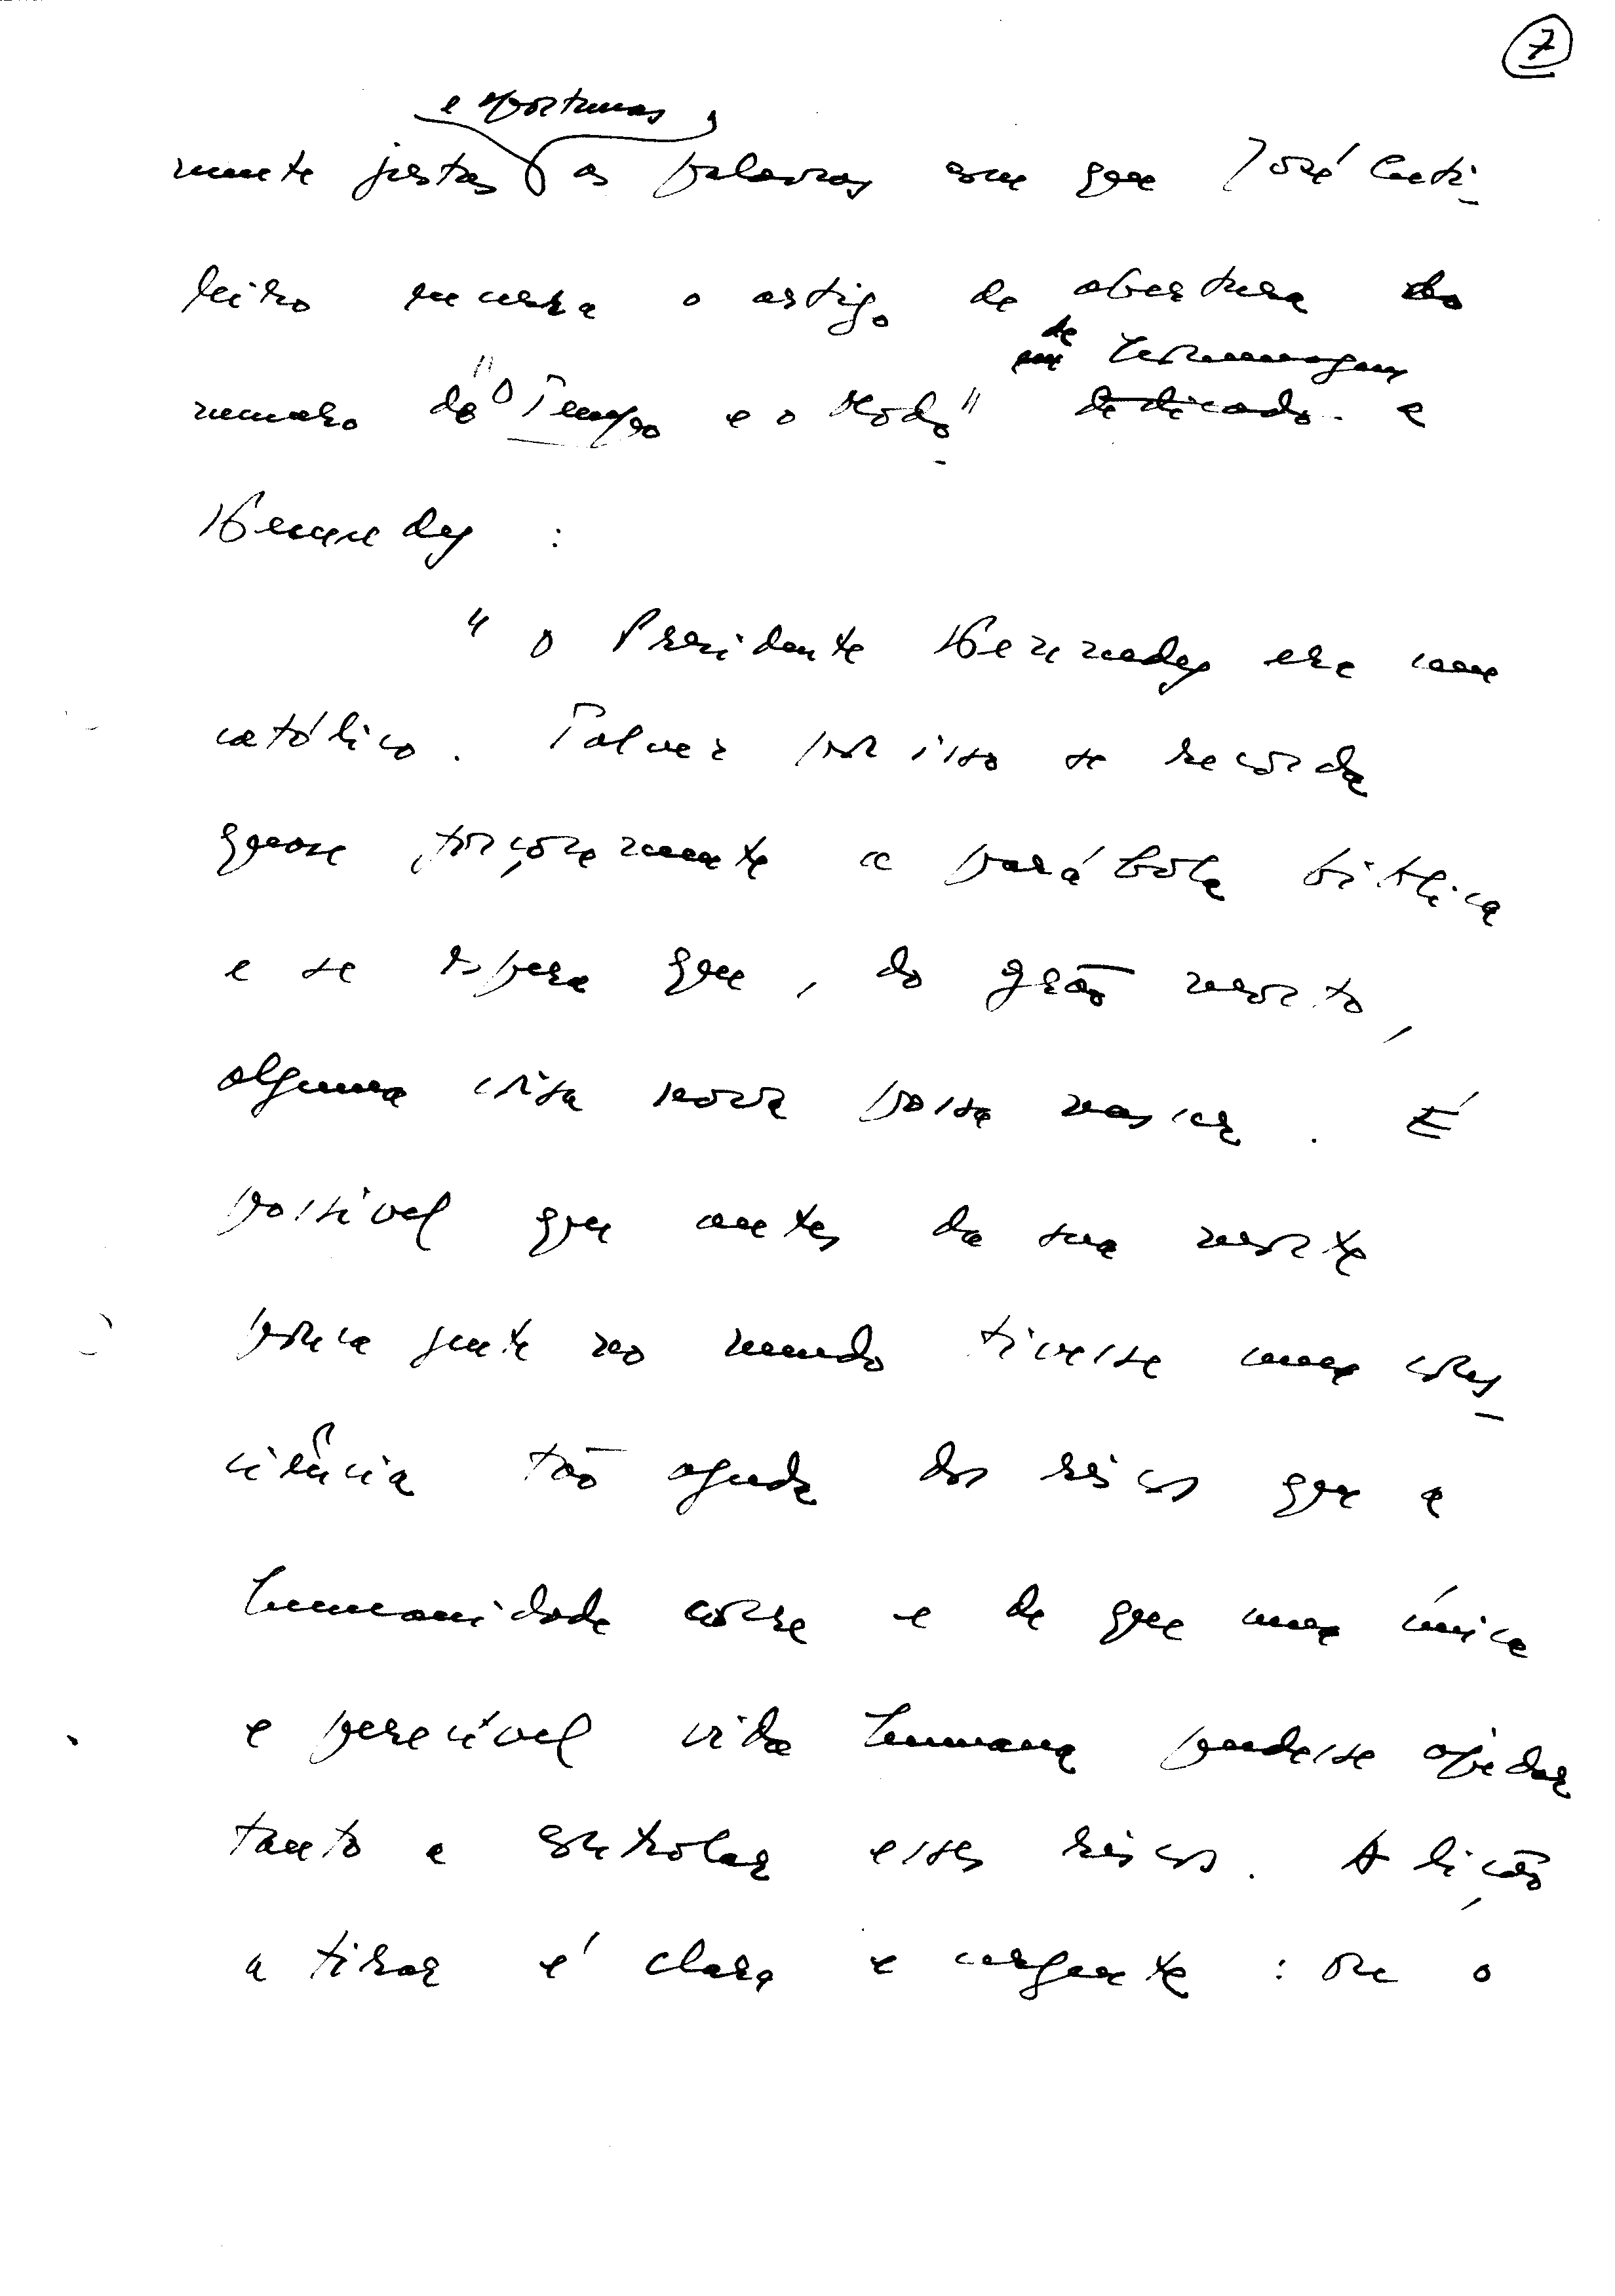 7
e oportunas,
mente justas as palavras com que José Cuti-
leiro encerra o artigo de abertura do
de homenagem
numero do "O Tempo e o Modo" dedicado a
Kennedy :
" O Presidente Kennedy era um
católico. Talvez por isso se recorda
quase forçosamente a parábola bíblica
e se espera que, do grão morto,
alguma coisa nova possa nascer. É
possível que antes da sua morte
pouca gente no mundo tivesse uma cons-
ciência tão aguda dos riscos que a
humanidade corre e de que uma única
e perecível vida humana pudesse ajudar
tanto a controlar esses riscos. A lição
a tirar é clara e urgente : ou o